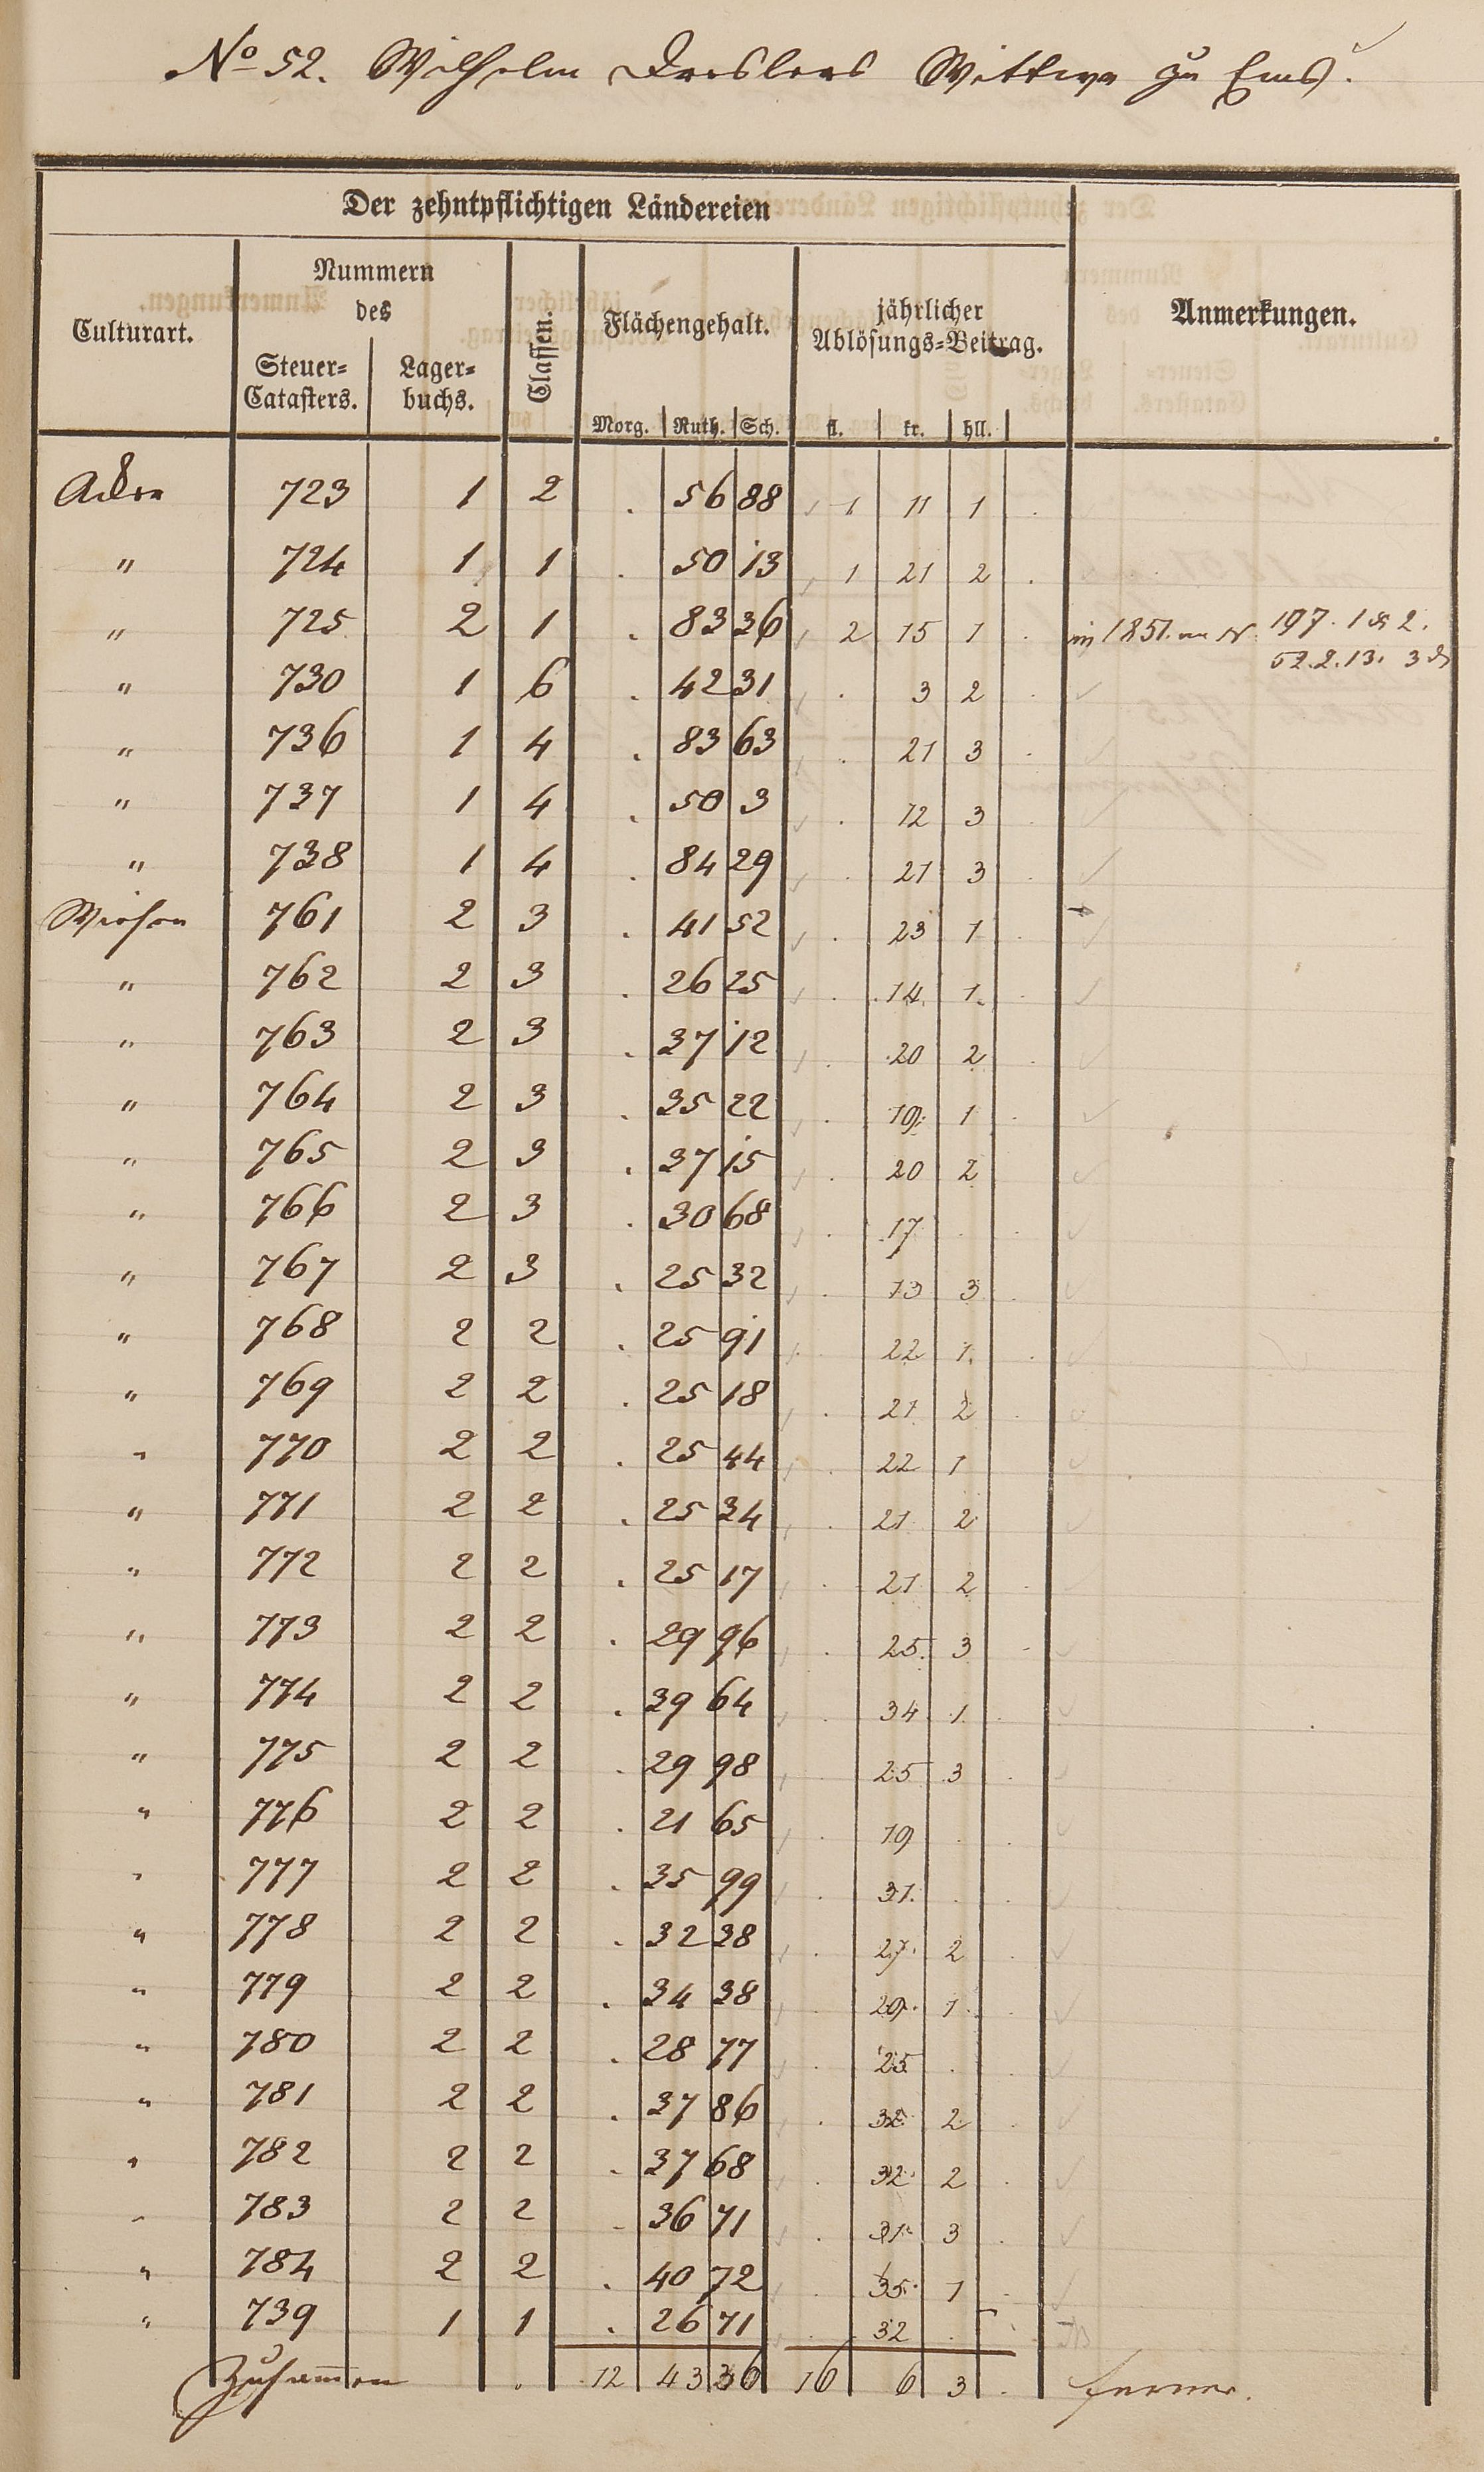 No 52. Wilhelm Dreslers Wittwe zu Ems.
Der zehntpflichtigen Ländereien
Culturart.
Nummern
des
Steuer=
Catasters.
Lager=
buchs.
Classen.
Flächengehalt.
Morg. Ruth. Sch.
jährlicher
Ablösungs=Beitrag.
fl. kr. hll.
Anmerkungen.
Acker 723 1 2 . 56 88 1 11 1
" 724 1 1 . 50 13 1 21 2
" 725 2 1 . 83 36 2 15 1 in 1851. 197. 1 & 2.
52.2.13. 3
" 730 1 6 . 42 31 . 3 2
" 736 1 4 . 83 63 . 21 3
" 737 1 4 . 50 3 . 12 3
" 738 1 4 . 84 29 . 21 3
Wiesen 761 2 3 . 41 52 . 23 1
" 762 2 3 . 26 25 . 14 1
" 763 2 3 . 37 12 . 20 2
" 764 2 3 . 35 22 . 19 1
" 765 2 3 . 37 15 . 20 2
" 766 2 3 . 30 68 . 17 .
" 767 2 3 . 25 32 . 13 3
" 768 2 2 . 25 91 . 22 1
" 769 2 2 . 25 18 . 21 2
" 770 2 2 . 25 44 . 22 1
" 771 2 2 . 25 34 . 21 2
" 772 2 2 . 25 17 . 21 2
" 773 2 2 . 29 96 . 25 3
" 774 2 2 . 39 64 . 34 1
" 775 2 2 . 29 98 . 25 3
" 776 2 2 . 21 65 . 19 .
" 777 2 2 . 35 99 . 31 .
" 778 2 2 . 32 38 . 27 2
" 779 2 2 . 34 38 . 29 1
" 780 2 2 . 28 77 . 25 .
" 781 2 2 . 37 86 . 32 2
" 782 2 2 . 37 68 . 32 2
" 783 2 2 . 36 71 . 31 3
" 784 2 2 . 40 72 . 35 1
" 739 1 1 . 26 71 . 32 .
Zusammen . 12 43 36 16 6 3 ferner.